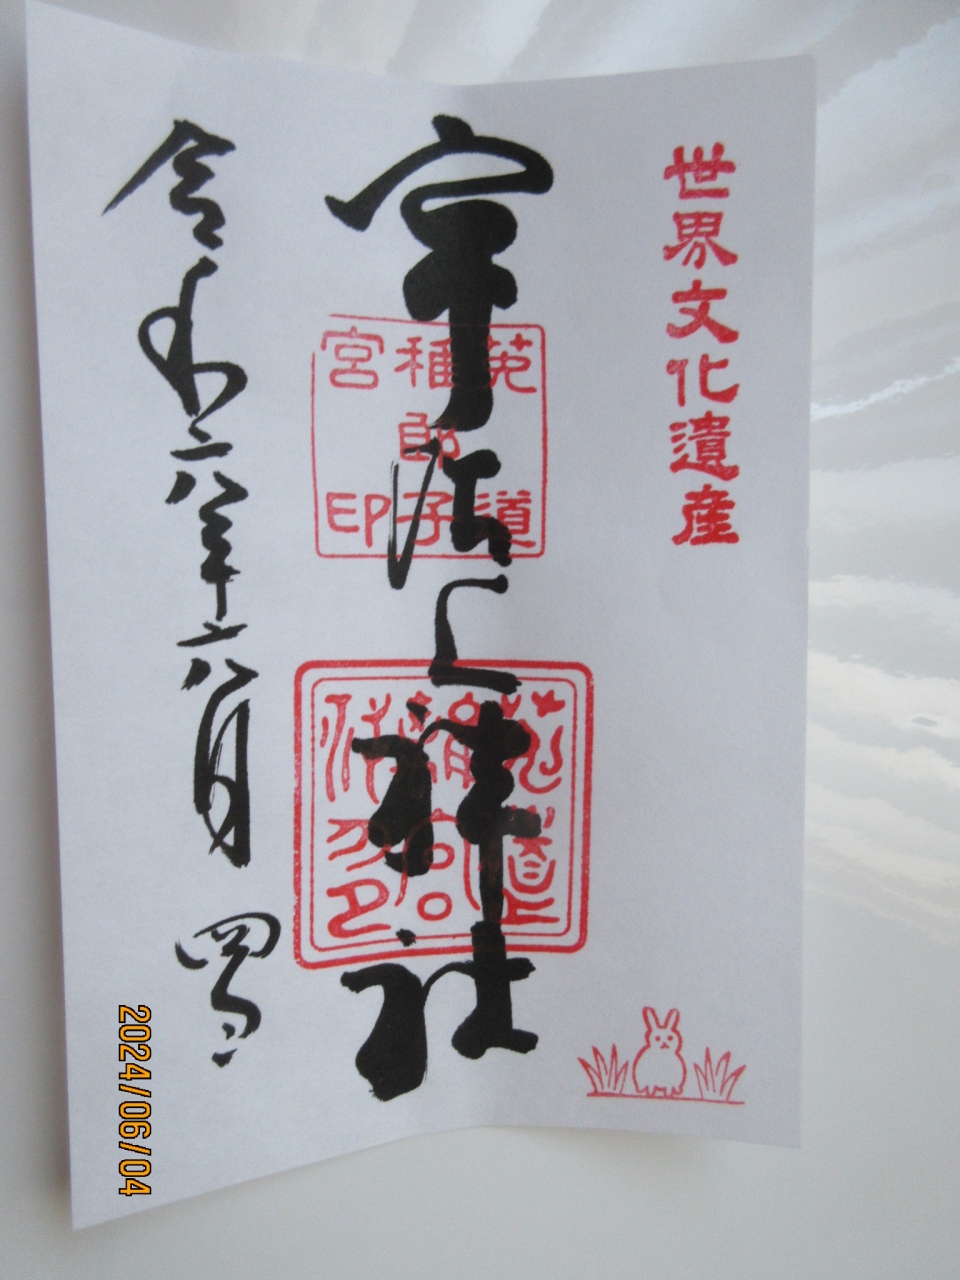 世界文化遺産
宇治上神社
莵道
稚郎子
宮印
令和六年六月四日
2024/06/04